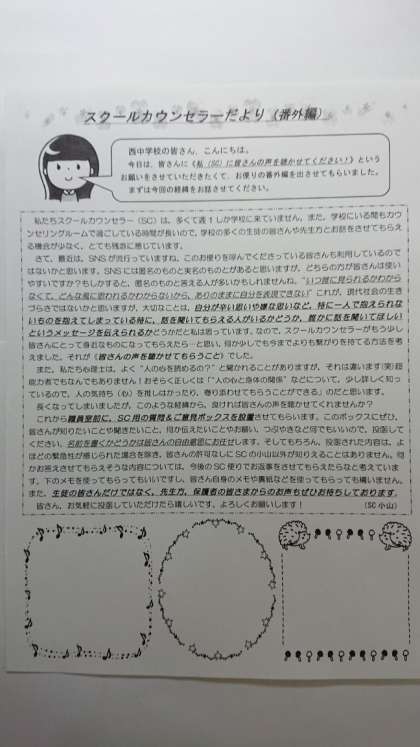 スクールカウンセラーだより（番外編）
西中学校の皆さん、こんにちは。
今日は、皆さんに《私（SC）に皆さんの声を聴かせてください！》という
お願いをさせていただきたくて、お便りの番外編を出させてもらいました。
まずは今回の経緯をお話させてください。
私たちスクールカウンセラー（SC）は、多くて週１しか学校に来ていません。また、学校にいる間もカウ
ンセリングルームで過ごしている時間が長いので、学校の多くの生徒の皆さんや先生方とお話をさせてもらえ
る機会が少なく、とても残念に感じています。
さて、最近は、SNSが流行っていますね。このお便りを読んでくださっている皆さんも利用しているので
はないかと思います。SNSには匿名のものと実名のものとがあると思いますが、どちらの方が皆さんは使い
やすいですか？もしかすると、匿名のものと答える人が多いかもしれませんね。“いつ誰に見られるかわから
なくて、どんな風に思われるかわからないから、ありのままに自分を表現できない”これが、現代社会の生き
づらさではないかと思いますが、大切なことは、自分が辛い思いや嫌な思いなど、特に一人で抱えられな
いものを抱えてしまっている時に、話を聞いてもらえる人がいるかどうか、誰かに話を聞いてほしい
というメッセージを伝えられるかどうかだと私は思っています。なので、スクールカウンセラーがもう少し
皆さんにとって身近なものになってもらえたら…と思い、何か少しでも今までよりも繋がりを持てる方法を考
えました。それが《皆さんの声を聴かせてもらうこと》でした。
また、私たち心理士は、よく“人の心を読めるの？”と聞かれることがありますが、それは違います(笑)超
能力者でもなんでもありません！おそらく正しくは“人の心と身体の関係”などについて、少し詳しく知っ
ているので、人の気持ち（心）を推しはかったり、寄り添わせてもらうことができる”のだと思います。
長くなってしまいましたが、このような経緯から、良ければ皆さんの声を聴かせてくれませんか？
これから職員室前に、SC用の質問＆ご意見ボックスを設置させてもらいます。このボックスにぜひ、
皆さんが知りたいことや聞きたいこと、何か伝えたいことやお願い、つぶやきなど何でもいいので、投函して
ください。名前を書くかどうかは皆さんの自由意思にお任せします。そしてもちろん、投函された内容は、よ
ほどの緊急性が感じられた場合を除き、皆さんの許可なしにSCの小山以外が知りえることはありません。何
かお答えさせてもらえそうな内容については、今後のSC便りでお返事をさせてもらえたらなと考えていま
す。下のメモを使ってもらってもいいですし、皆さん自身のメモや裏紙などを使ってもらっても構いません。
また、生徒の皆さんだけではなく、先生方、保護者の皆さまからのお声もぜひお待ちしております。
皆さん、お気軽に投函していただけたら嬉しいです。よろしくお願いします！（SC 小山）